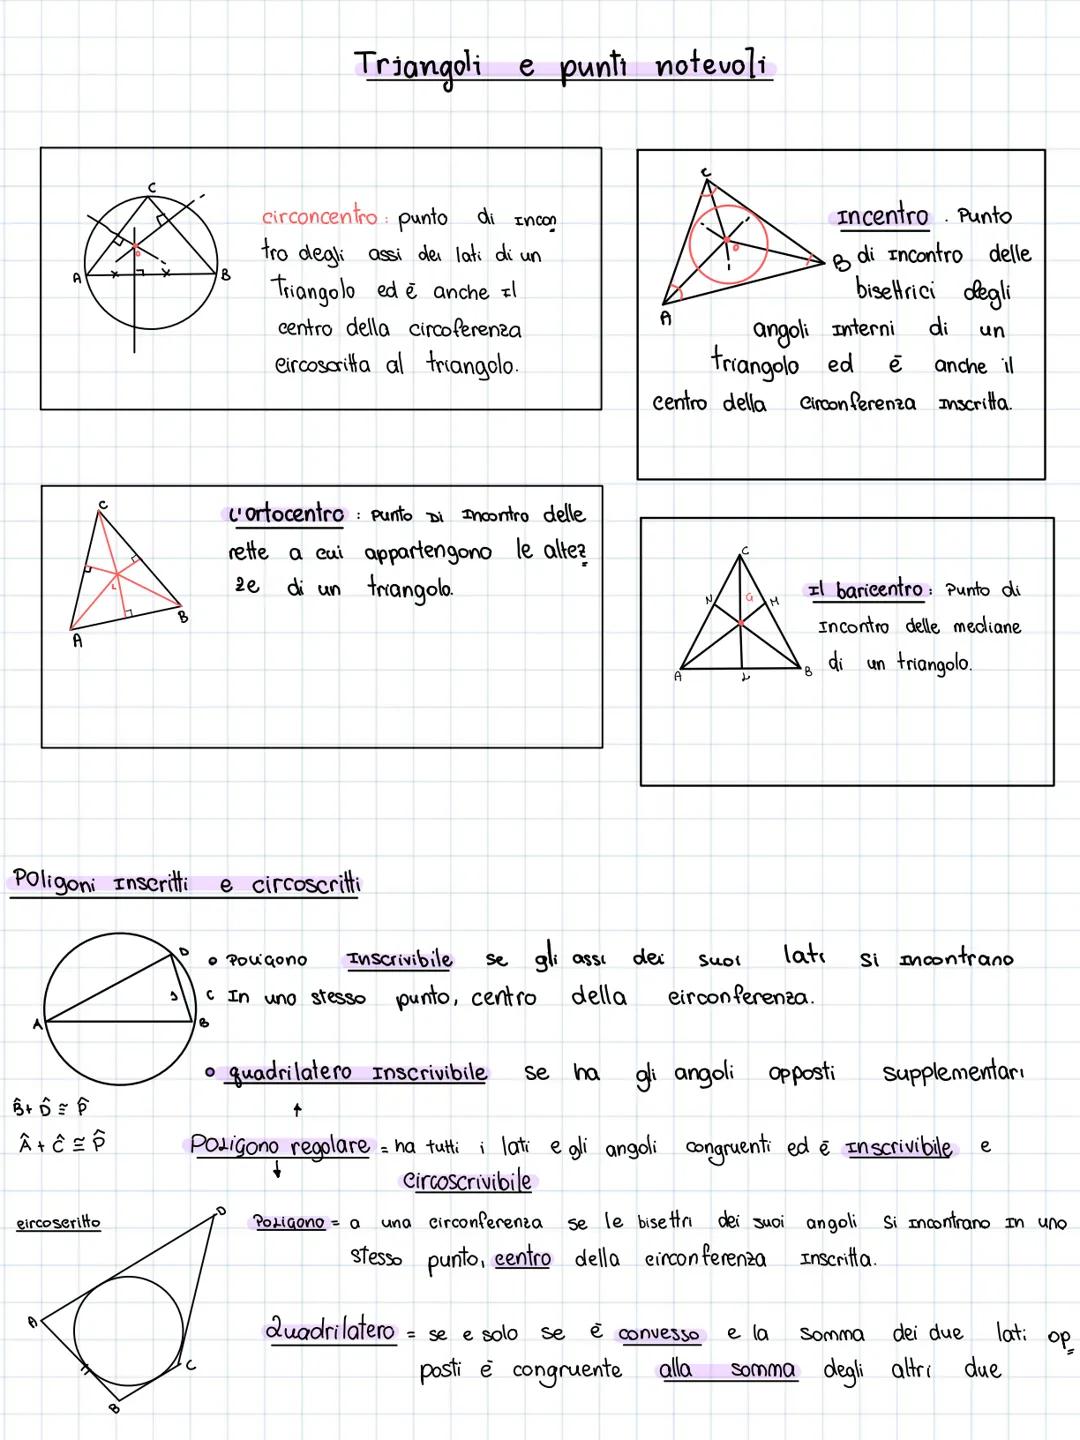 Triangoli e punti notevoli
C
A
B
circoncentro: punto di incon
tro degli assi dei lati di un
Triangolo ed è anche il
centro della circoferenza
circoscritta al triangolo.
C
o
B
A
Incentro. Punto
di incontro delle
bisettrici degli
angoli interni di un
triangolo ed è anche il
centro della circonferenza inscritta.
C
L
B
A
L'ortocentro: punto di incontro delle
rette a cui appartengono le altez
ze di un triangolo.
C
N
G
M
A
L
B
Il baricentro: Punto di
incontro delle mediane
di un triangolo.
Poligoni inscritti e circoscritti
D
C
A
B
• Poligono inscrivibile se gli assi dei suoi lati si incontrano
in uno stesso punto, centro della circonferenza.
• quadrilatero inscrivibile se ha gli angoli opposti supplementari
B̂ + D̂ ≅ P̂
Â + Ĉ ≅ P̂
Poligono regolare = ha tutti i lati e gli angoli congruenti ed è inscrivibile e
circoscrivibile
circoscritto
D
A
C
B
Poligono = a una circonferenza se le bisettri dei suoi angoli si incontrano in uno
stesso punto, centro della circonferenza inscritta.
Quadrilatero = se e solo se è convesso e la somma dei due lati op
posti è congruente alla somma degli altri due